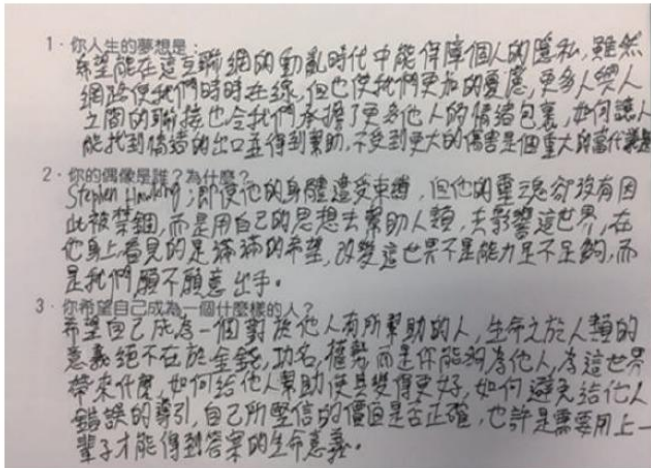 1·你人生的夢想是：
希望能在這互聯網的動亂時代中能保障個人的隱私，雖然
網路使我們時時在線，但也使我們更加的憂慮，更多人與人
之間的聯接也令我們承擔了更多他人的情緒包裹，如何讓人
能找到情緒的出口並得到幫助，不受到更大的傷害是個重大的當代議題
2·你的偶像是誰？為什麼？
Stephen Hawking；即使他的身體遭受束縛，但他的靈魂卻沒有因
此被禁錮，而是用自己的思想去幫助人類，去影響這世界，在
他身上看見的是滿滿的希望，改變這世界不是能力足不足夠，而
是我們願不願意出手。
3·你希望自己成為一個什麼樣的人？
希望自己成為一個對於他人有所幫助的人，生命之於人類的
意義絕不在於金錢，功名，權勢而是你能夠為他人，為這世界
帶來什麼，如何給他人幫助使其變得更好，如何避免給他人
錯誤的導引，自己所堅信的價值是否正確，也許是需要用上一
輩子才能得到答案的生命意義。